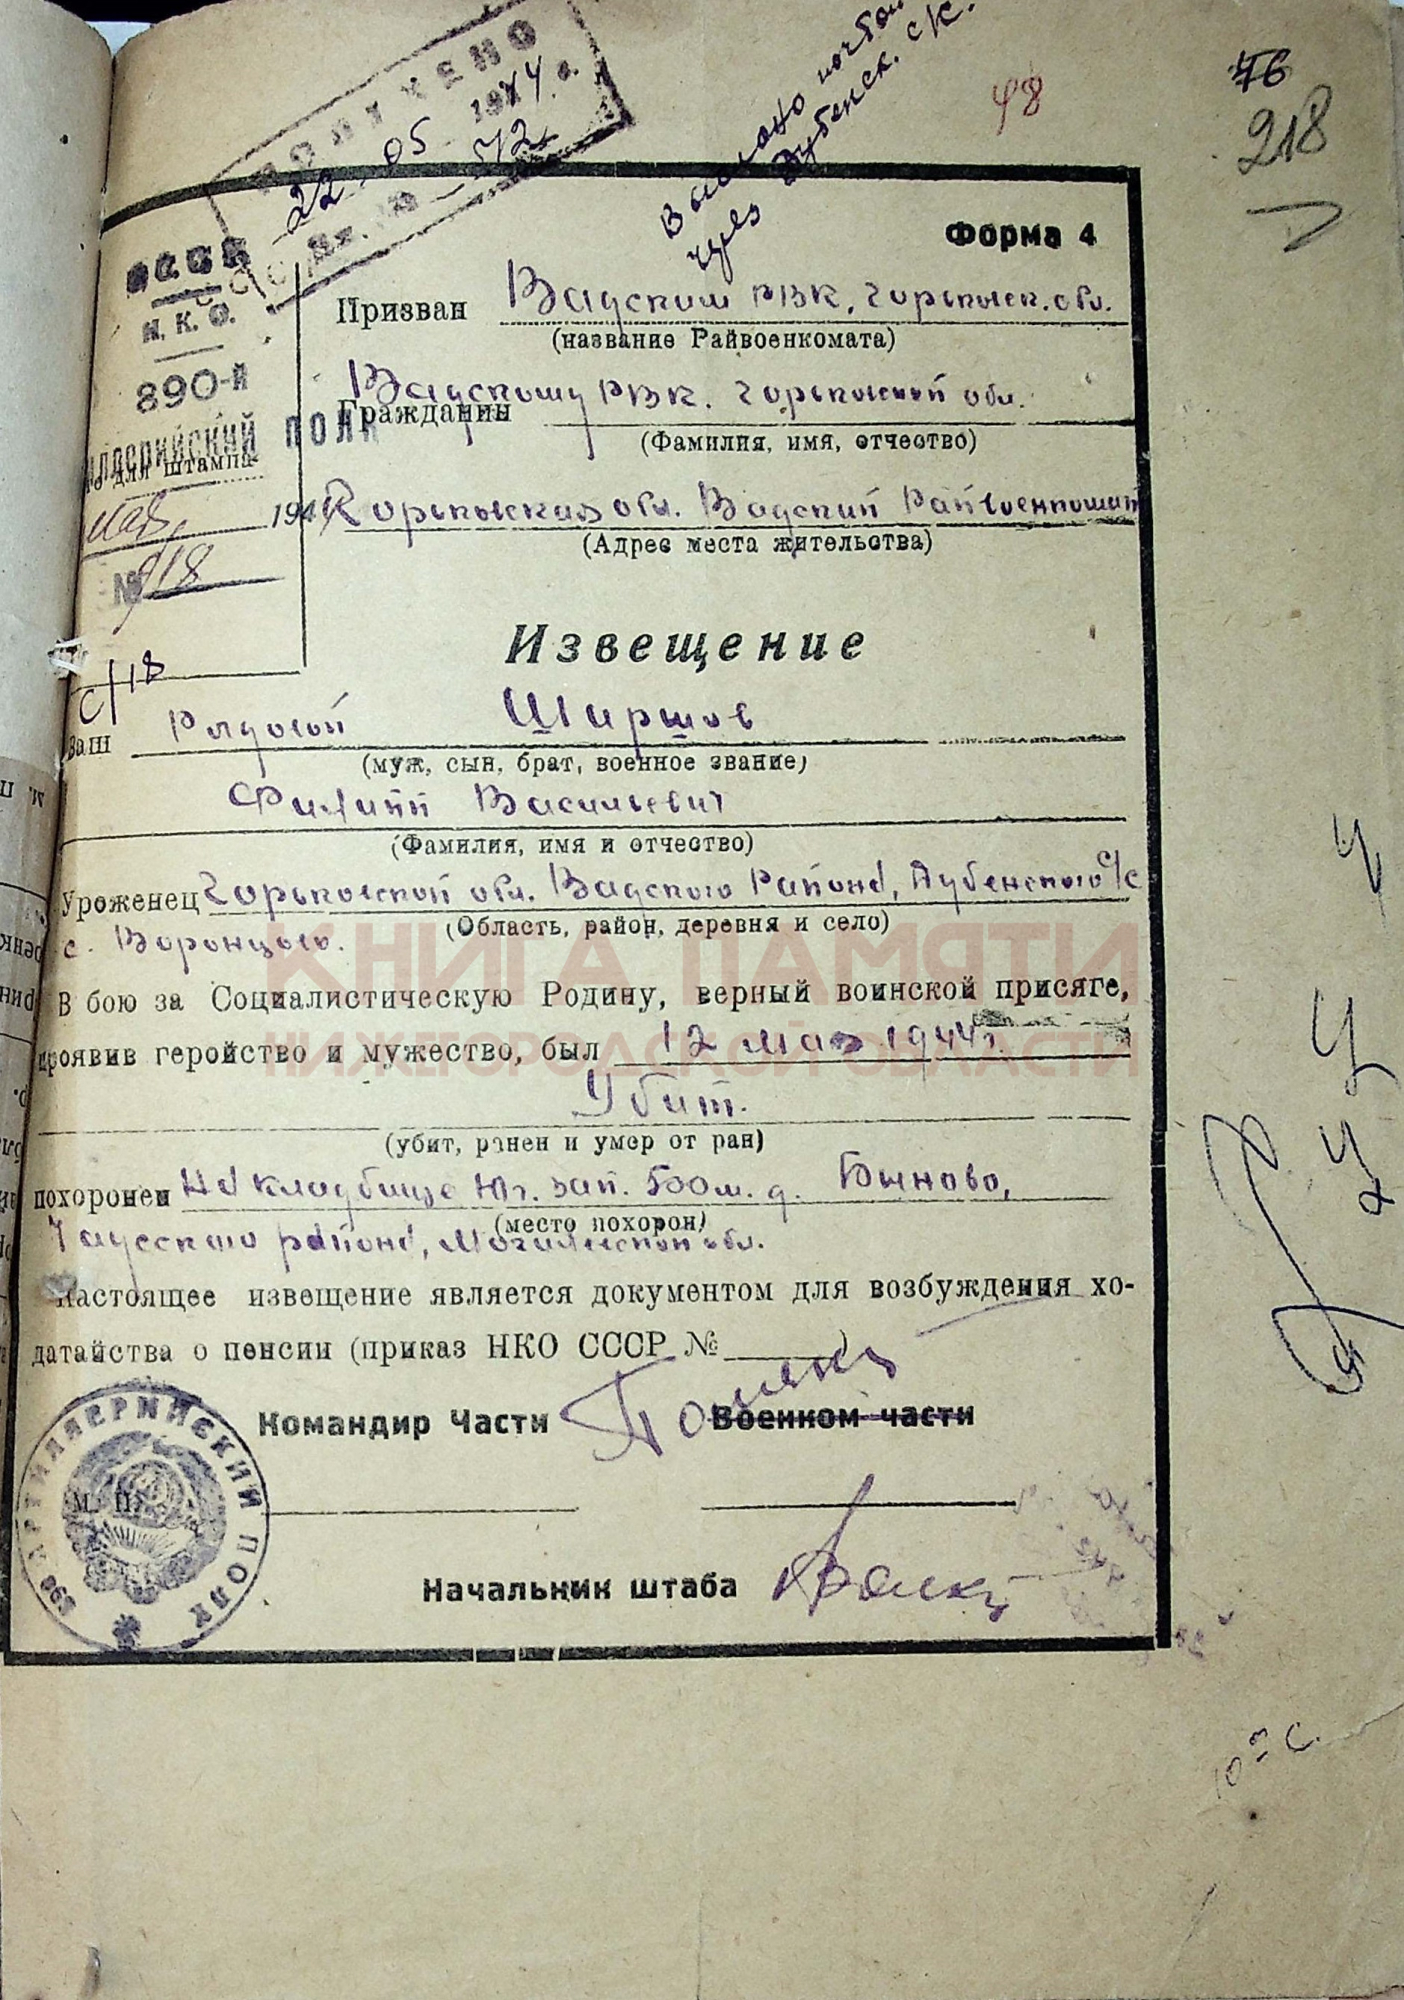 ПОЛУЧЕНО
22 05 1944 г.
Вх. № 572
Выслано почтой
через Дубенск. с/к.
48
76
218
Форма 4
СССР
Н. К. О.
890-й
АРТИЛЛЕРИЙСКИЙ ПОЛК
для штампа
мая 194
№ 918
с/18
Призван Вадским РВК, Горьковск. обл.
(название Райвоенкомата)
Вадскому РВК. Горьковской обл.
Гражданин
(Фамилия, имя, отчество)
Горьковская обл. Вадский Райвоенкомат
(Адрес места жительства)
Извещение
Ваш Рядовой Ширшов
(муж, сын, брат, военное звание)
Филипп Васильевич
(Фамилия, имя и отчество)
Уроженец Горьковской обл. Вадского Района, Дубенского с/с
(Область, район, деревня и село)
с. Воронцово.
КНИГА ПАМЯТИ
НИЖЕГОРОДСКОЙ ОБЛАСТИ
В бою за Социалистическую Родину, верный воинской присяге,
проявив геройство и мужество, был 12 мая 1944 г.
Убит.
(убит, ранен и умер от ран)
похоронен На кладбище Юг. зап. 500 м. д. Быново,
(место похорон)
Чаусского района, Могилевской обл.
Настоящее извещение является документом для возбуждения хо-
датайства о пенсии (приказ НКО СССР № )
Командир Части Военком части
М. П.
Начальник штаба
890 АРТИЛЛЕРИЙСКИЙ ПОЛК